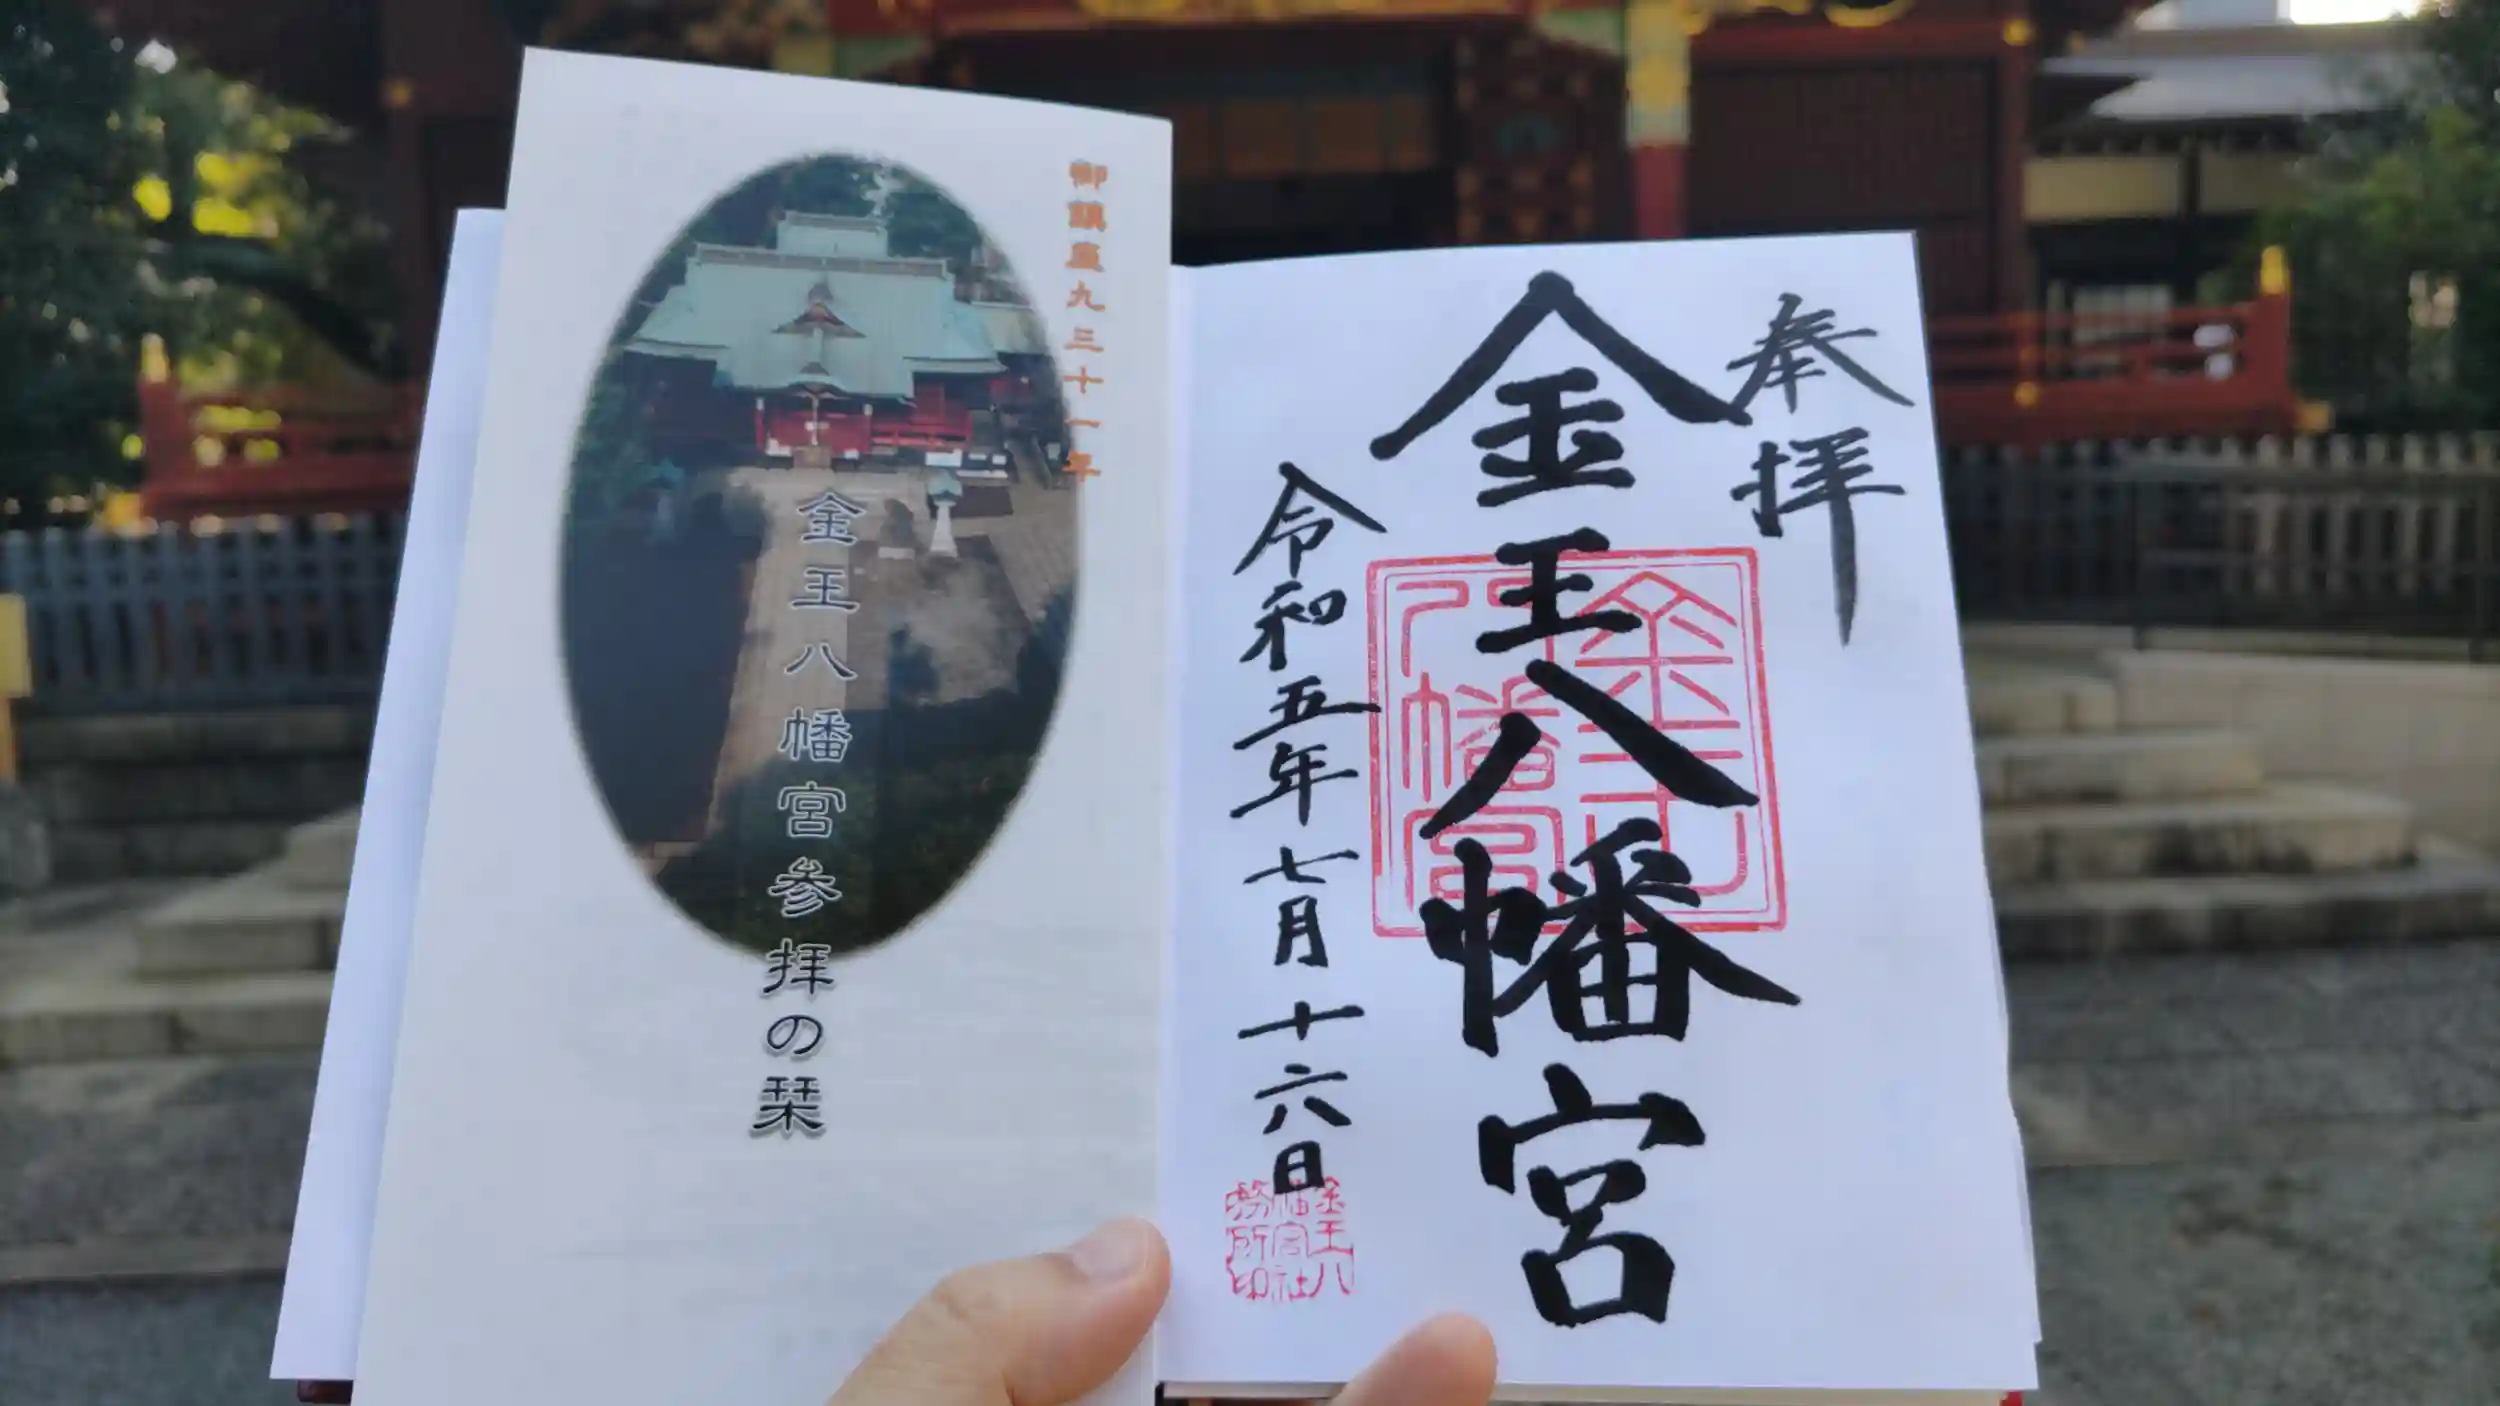 御鎮座九三十一年
金王八幡宮参拝の栞
奉拝
金王八幡宮
令和五年七月十六日
金王八幡宮
金王八幡宮社務所印